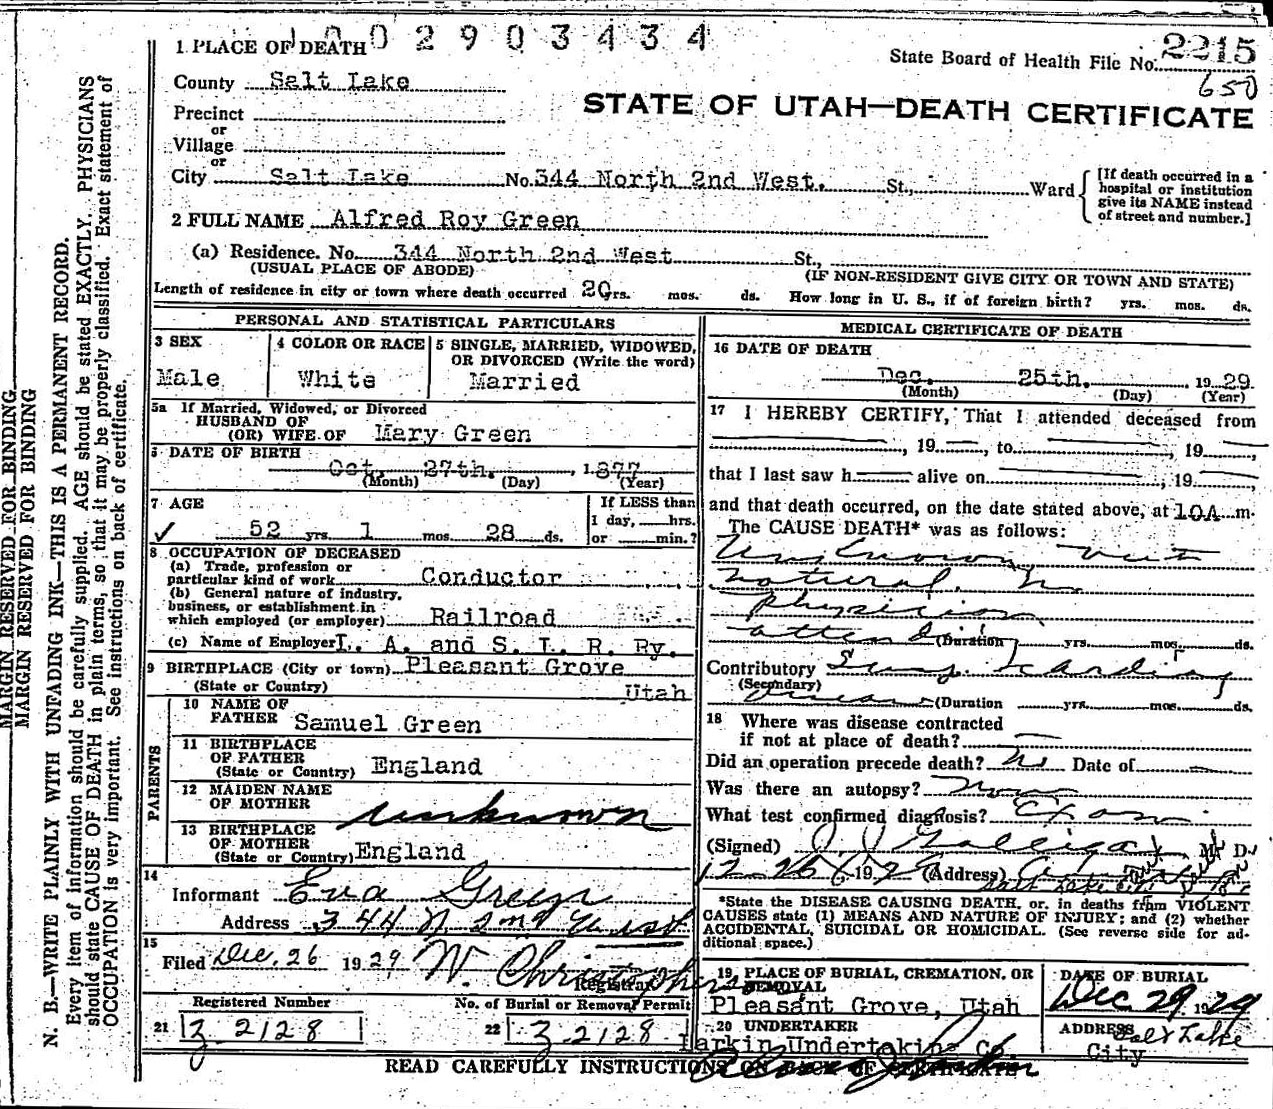 1002903434
State Board of Health File No. 2215
650
1 PLACE OF DEATH
County Salt Lake
STATE OF UTAH—DEATH CERTIFICATE
Precinct
or
Village
or
City Salt Lake No. 344 North 2nd West. St., Ward [If death occurred in a hospital or institution give its NAME instead of street and number.]
2 FULL NAME Alfred Roy Green
(a) Residence. No. 344 North 2nd West St.,
(USUAL PLACE OF ABODE) (IF NON-RESIDENT GIVE CITY OR TOWN AND STATE)
Length of residence in city or town where death occurred 20 yrs. mos. ds. How long in U. S., if of foreign birth? yrs. mos. ds.
PERSONAL AND STATISTICAL PARTICULARS
3 SEX
Male
4 COLOR OR RACE
White
5 SINGLE, MARRIED, WIDOWED,
OR DIVORCED (Write the word)
Married
5a If Married, Widowed, or Divorced
HUSBAND OF
(OR) WIFE OF Mary Green
DATE OF BIRTH
Oct. 27th. , 1877
(Month) (Day) (Year)
7 AGE
52 yrs. 1 mos. 28 ds.
If LESS than
1 day, hrs.
or min.?
8 OCCUPATION OF DECEASED
(a) Trade, profession or
particular kind of work Conductor
(b) General nature of industry,
business, or establishment in
which employed (or employer) Railroad
(c) Name of Employer L. A. and S. L. R. Ry.
9 BIRTHPLACE (City or town) Pleasant Grove
(State or Country) Utah
PARENTS
10 NAME OF
FATHER Samuel Green
11 BIRTHPLACE
OF FATHER
(State or Country) England
12 MAIDEN NAME
OF MOTHER unknown
13 BIRTHPLACE
OF MOTHER
(State or Country) England
14
Informant Eva Green
Address 344 N 2nd West
15
Filed Dec. 26 1929 W Christophers
Registrar
Registered Number
21 Z 2128
No. of Burial or Removal Permit
22 Z 2128
MEDICAL CERTIFICATE OF DEATH
16 DATE OF DEATH
Dec. 25th. , 1929
(Month) (Day) (Year)
17 I HEREBY CERTIFY, That I attended deceased from
, 19 , to , 19 ,
that I last saw h alive on , 19 ,
and that death occurred, on the date stated above, at 10A m.
The CAUSE DEATH* was as follows:
Unknown but
natural. No
physician
attending
(Duration) yrs. mos. ds.
Contributory
(Secondary)
(Duration yrs. mos. ds.
18 Where was disease contracted
if not at place of death?
Did an operation precede death? No Date of
Was there an autopsy? None
What test confirmed diagnosis? Exam
(Signed) J J Galligan, M. D.
12-26, 1929 (Address)
Salt Lake City
*State the DISEASE CAUSING DEATH, or, in deaths from VIOLENT
CAUSES state (1) MEANS AND NATURE OF INJURY; and (2) whether
ACCIDENTAL, SUICIDAL OR HOMICIDAL. (See reverse side for ad-
ditional space.)
19 PLACE OF BURIAL, CREMATION, OR
REMOVAL
Pleasant Grove, Utah
DATE OF BURIAL
Dec 29 1929
20 UNDERTAKER
Larkin Undertaking Co.
ADDRESS
Salt Lake
City
READ CAREFULLY INSTRUCTIONS ON BACK OF CERTIFICATE
MARGIN RESERVED FOR BINDING
MARGIN RESERVED FOR BINDING
N. B.—WRITE PLAINLY WITH UNFADING INK—THIS IS A PERMANENT RECORD.
Every item of information should be carefully supplied. AGE should be stated EXACTLY. PHYSICIANS
should state CAUSE OF DEATH in plain terms, so that it may be properly classified. Exact statement of
OCCUPATION is very important. See instructions on back of certificate.